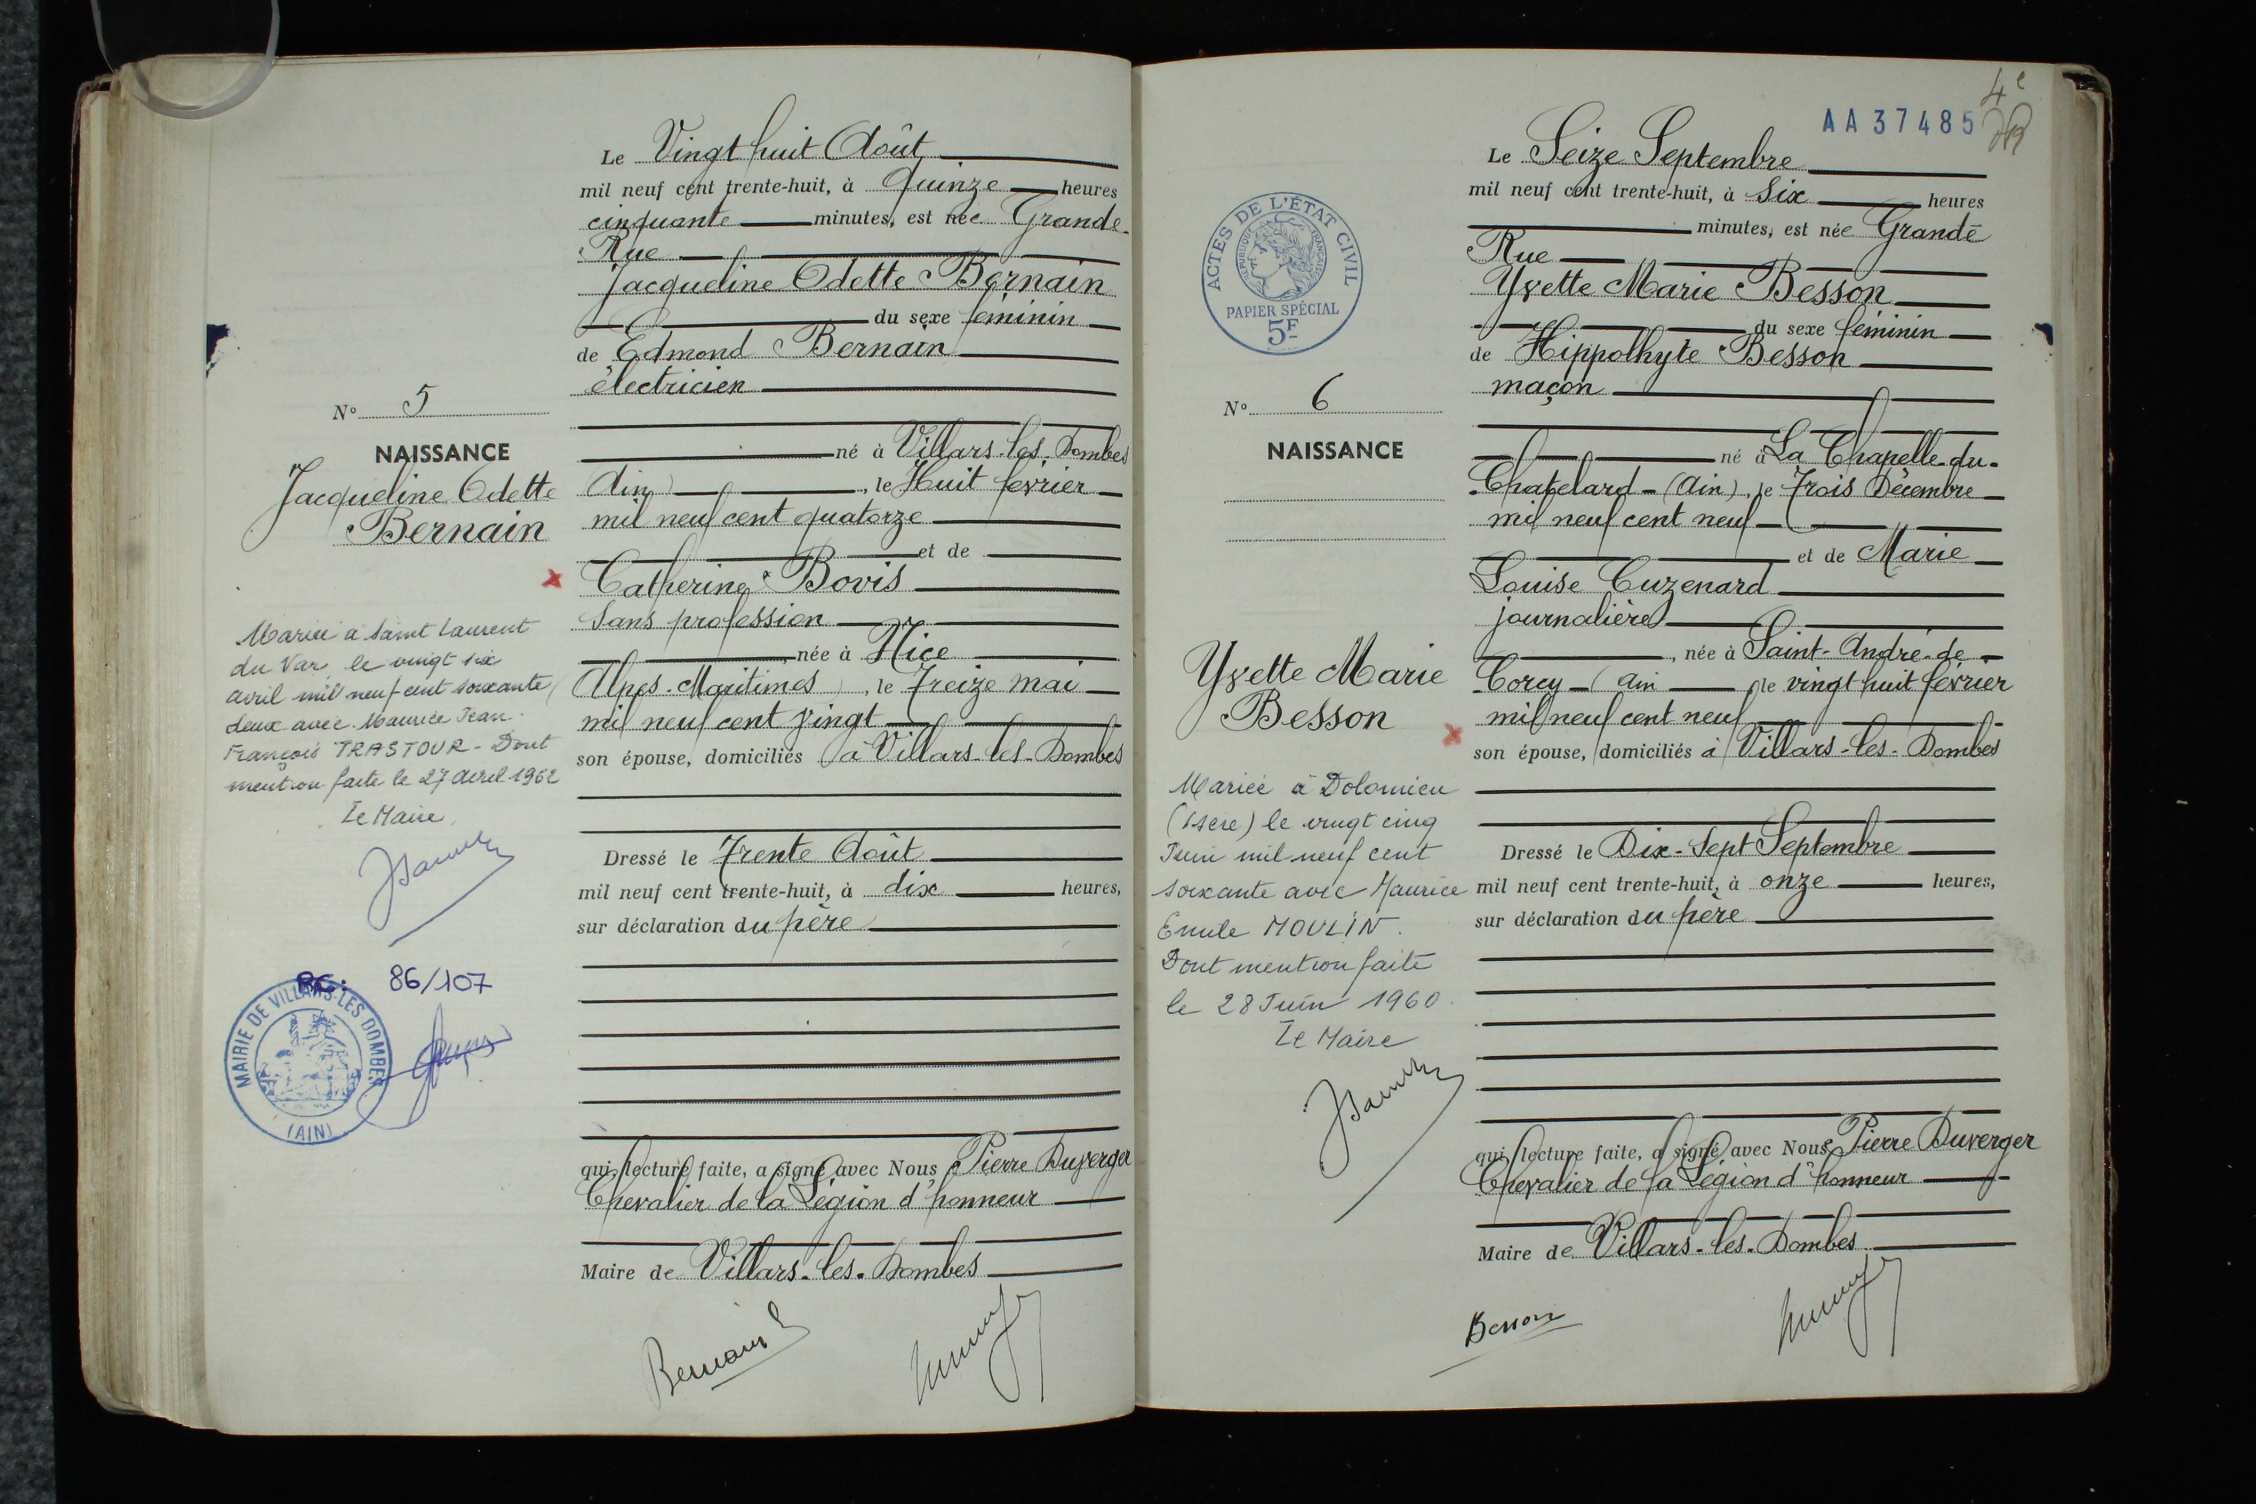 Le Vingt huit Août
mil neuf cent trente-huit, à quinze heures
cinquante minutes, est née Grande-
Rue
Jacqueline Odette Bernain
du sexe féminin
de Edmond Bernain
électricien
né à Villars-les-Dombes
Ain), le Huit février
mil neuf cent quatorze
et de
Catherine Bovis
Sans profession
née à Nice
Alpes-Maritimes), le Treize mai
mil neuf cent vingt
son épouse, domiciliés à Villars-les-Dombes
Dressé le Trente Août
mil neuf cent trente-huit, à dix heures,
sur déclaration du père
qui, lecture faite, a signé avec Nous Pierre Duverger
Chevalier de la Légion d'honneur
Maire de Villars-les-Dombes
Bernain
N° 5
NAISSANCE
Jacqueline Odette
Bernain
Mariée à Saint Laurent
du Var, le vingt six
avril mil neuf cent soixante
deux avec Maurice Jean
François TRASTOUR - Dont
mention faite le 27 Avril 1962
Le Maire
RC: 86/107
MAIRIE DE VILLARS-LES DOMBES
(AIN)
AA37485
4e
Le Seize Septembre
mil neuf cent trente-huit, à six heures
minutes, est née Grande
Rue
Yvette Marie Besson
du sexe féminin
de Hippolhyte Besson
maçon
né à La Chapelle-du-
Chatelard-(Ain), le Trois Décembre
mil neuf cent neuf
et de Marie
Louise Cuzenard
journalière
, née à Saint-André-de-
Corcy-(Ain le vingt huit février
mil neuf cent neuf
son épouse, domiciliés à Villars-les-Dombes
Dressé le Dix-Sept Septembre
mil neuf cent trente-huit, à onze heures,
sur déclaration du père
qui, lecture faite, a signé avec Nous, Pierre Duverger
Chevalier de la Légion d'honneur
Maire de Villars-les-Dombes
Besson
ACTES DE L'ÉTAT CIVIL
RÉPUBLIQUE FRANÇAISE
PAPIER SPÉCIAL
5F
N° 6
NAISSANCE
Yvette Marie
Besson
Mariée à Dolomieu
(Isère) le vingt cinq
Juin mil neuf cent
soixante avec Maurice
Emile MOULIN.
Dont mention faite
le 28 Juin 1960.
Le Maire